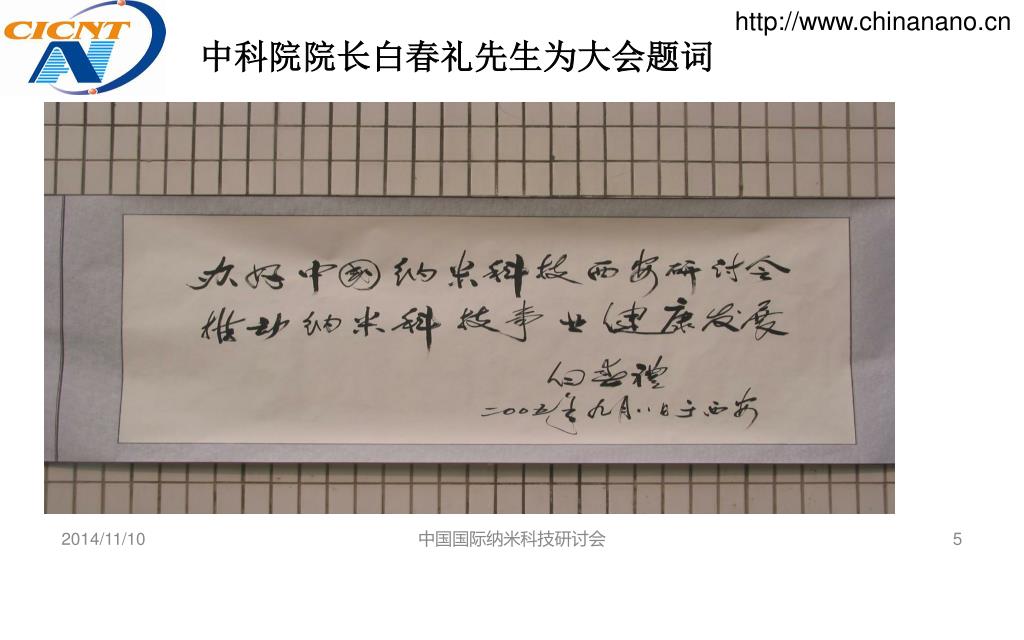 CICNT
http://www.chinanano.cn
中科院院长白春礼先生为大会题词
办好中國纳米科技西安研讨会
推动纳米科技事业健康发展
白春禮
二〇〇五年九月八日于西安
2014/11/10
中国国际纳米科技研讨会
5